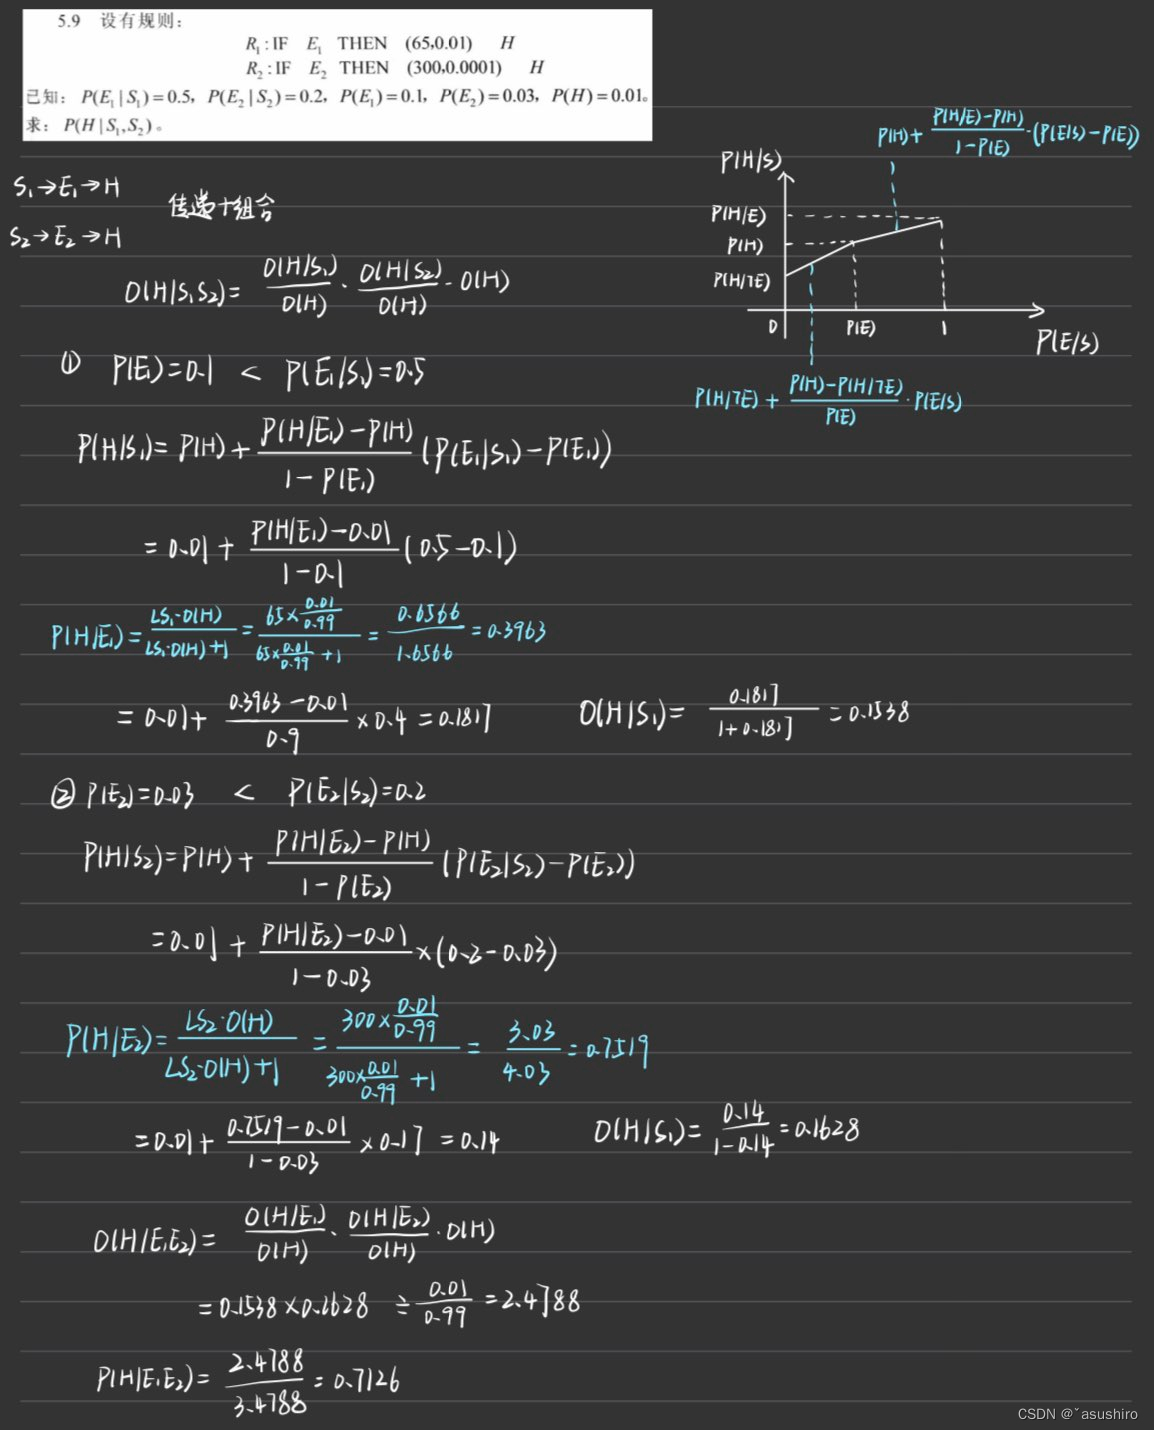 5.9 设有规则：
R₁: IF E₁ THEN (65,0.01) H
R₂: IF E₂ THEN (300,0.0001) H
已知：P(E₁|S₁)=0.5，P(E₂|S₂)=0.2，P(E₁)=0.1，P(E₂)=0.03，P(H)=0.01。
求：P(H|S₁,S₂)。
S₁→E₁→H
S₂→E₂→H
传递+组合
P(H)+ (P(H/E)-P(H))/(1-P(E)) ·(P(E/S)-P(E))
P(H/S)
P(H/E)
P(H)
P(H/¬E)
0 P(E) 1
P(E/S)
P(H/¬E) + (P(H)-P(H/¬E))/P(E) · P(E/S)
O(H|S₁S₂)= O(H/S₁)/O(H) · O(H|S₂)/O(H) · O(H)
① P(E₁)=0.1 < P(E₁/S₁)=0.5
P(H/S₁)= P(H)+ (P(H/E₁)-P(H))/(1-P(E₁)) (P(E₁|S₁)-P(E₁))
= 0.01+ (P(H/E₁)-0.01)/(1-0.1) (0.5-0.1)
P(H/E₁)= LS₁·O(H)/(LS₁·O(H)+1) = (65×0.01/0.99)/(65×0.01/0.99 +1) = 0.6566/1.6566 = 0.3963
= 0.01+ (0.3963-0.01)/0.9 ×0.4 =0.1817
O(H|S₁)= 0.1817/(1+0.1817) =0.1538
② P(E₂)=0.03 < P(E₂|S₂)=0.2
P(H|S₂)=P(H)+ (P(H|E₂)-P(H))/(1-P(E₂)) (P(E₂|S₂)-P(E₂))
=0.01 + (P(H|E₂)-0.01)/(1-0.03) ×(0.2-0.03)
P(H|E₂)= LS₂·O(H)/(LS₂·O(H)+1) = (300×0.01/0.99)/(300×0.01/0.99 +1) = 3.03/4.03 =0.7519
=0.01+ (0.7519-0.01)/(1-0.03) ×0.17 =0.14
O(H|S₁)= 0.14/(1-0.14) =0.1628
O(H/E₁E₂)= O(H/E₁)/O(H) · O(H|E₂)/O(H) ·O(H)
=0.1538×0.1628 ÷ 0.01/0.99 =2.4788
P(H|E₁E₂)= 2.4788/3.4788 =0.7126
CSDN @ˇasushiro